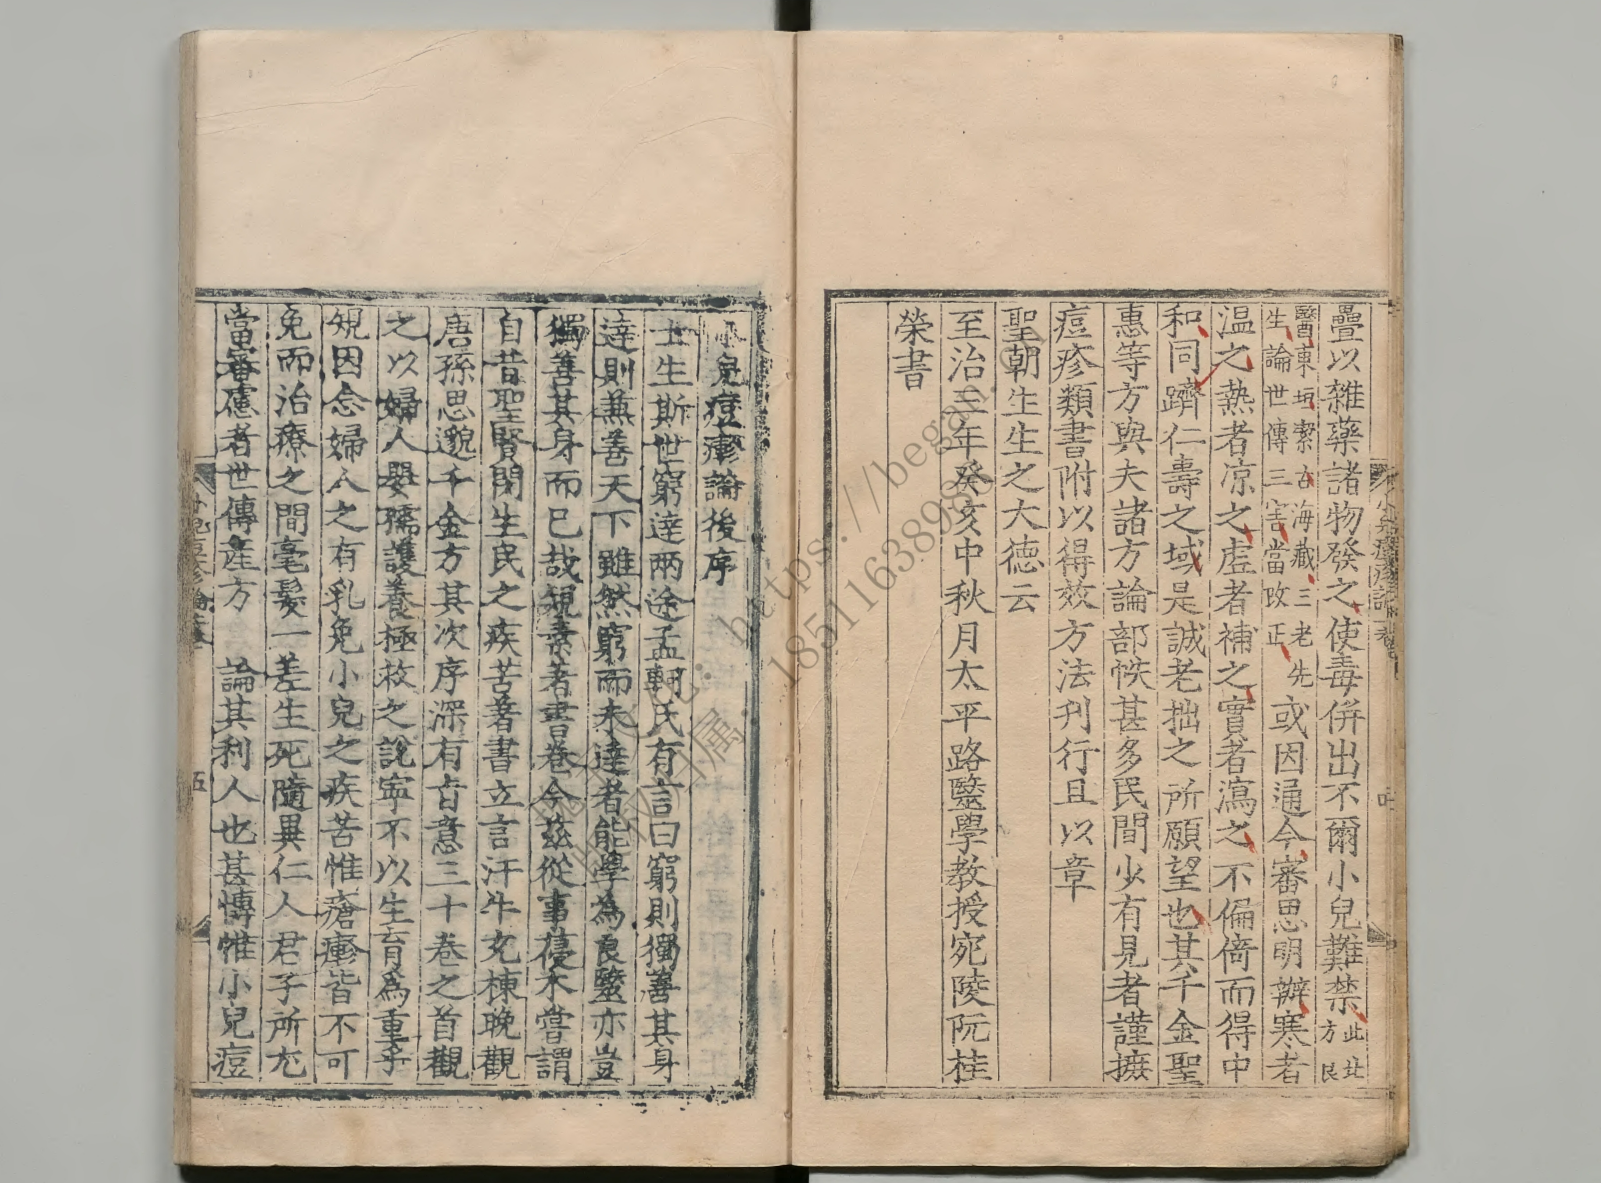 疊以雜藥諸物發之使毒併出不爾小兒難禁此北方民
醫東垣潔古海藏三老先生論世傳三害當改正或因通今審思明辦寒者
温之熱者凉之虛者補之實者瀉之不偏倚而得中
和同躋仁壽之域是誠老拙之所願望也其千金聖
惠等方與夫諸方論部帙甚多民間少有見者謹摭
痘疹類書附以得效方法刊行且以章
聖朝生生之大德云
至治三年癸亥中秋月太平路醫學教授宛陵阮桂
榮書
小兒痘疹論後序
士生斯世窮達兩途孟軻氏有言曰窮則獨善其身
達則兼善天下雖然窮而未達者能學為良醫亦豈
獨善其身而已哉覌素著書卷今茲從事優禾嘗謂
自昔聖賢閔生民之疾苦著書立言汗牛充棟晚觀
唐孫思邈千金方其次序深有㫖意三十卷之首觀
之以婦人嬰孺護養極救之說寧不以生育爲重乎
覌因念婦人之有乳兒小兒之疾苦惟瘡疹皆不可
免而治療之間毫髮一差生死隨異仁人君子所尤
當審慮者世傳産方論其利人也甚慱惟小兒痘
五
https://began.cn
18511638985